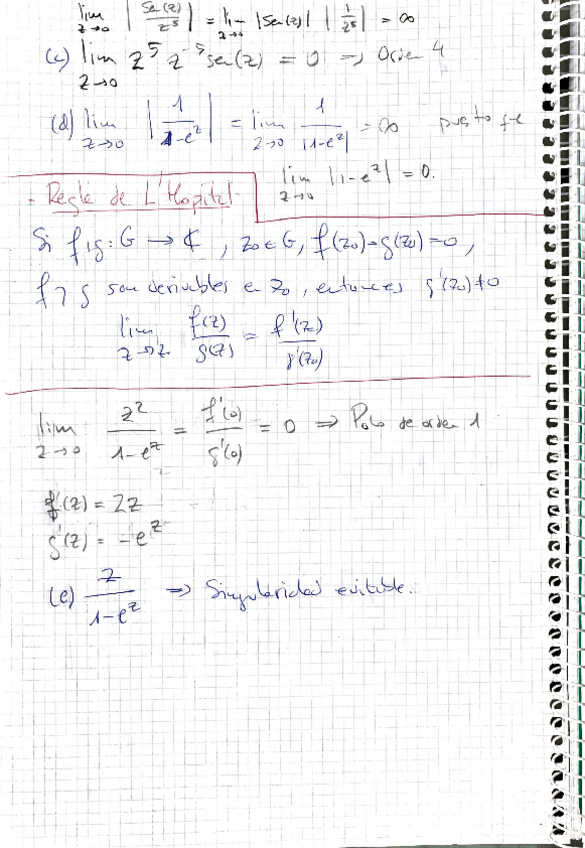 lim z→0 | Sen(z)/z⁵ | = lim z→0 |Sen(z)| | 1/z⁵ | = ∞
(c) lim z→0 z⁵ z⁻⁵ sen(z) = 0 ⇒ Orden 4
(d) lim z→0 | 1/1-eᶻ | = lim z→0 1/|1-eᶻ| = ∞ puesto que
lim z→0 |1-eᶻ| = 0.
- Regla de L'Hopital-
Si f y g: G → ℂ, z₀ ∈ G, f(z₀)=g(z₀)=0,
f y g son derivables en z₀, entonces g'(z₀)≠0
lim z→z₀ f(z)/g(z) = f'(z₀)/g'(z₀)
lim z→0 z²/1-eᶻ = f'(0)/g'(0) = 0 ⇒ Polo de orden 1
f'(z) = 2z
g'(z) = -eᶻ
(e) z/1-eᶻ ⇒ Singularidad evitable.